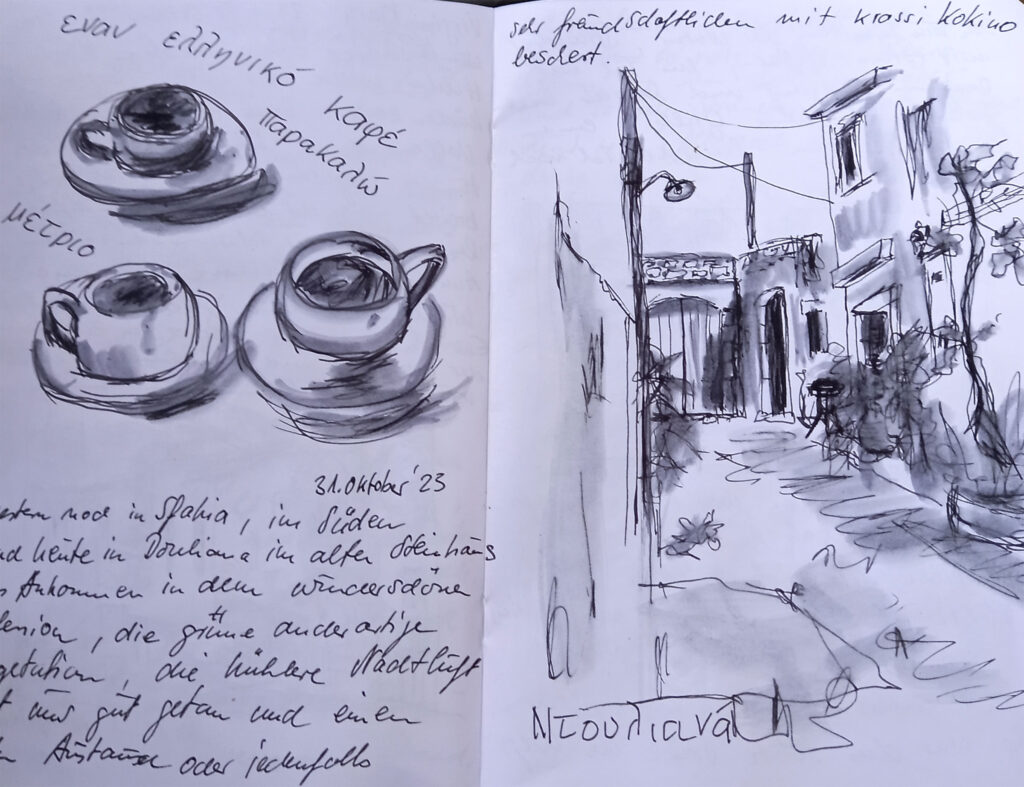 εναν ελληνικό
καφέ
παρακαλώ
μέτριο
31. Oktober '23
estern noch in Sfakia, im Süden
nd heute in Douliana im alten Steinhaus
s Ankommen in dem wunderschönen
ension, die grüne andersartige
getation, die kühlere Nachtluft
t uns gut getan und einen
n oder jedenfalls
sehr freundschaftlichen mit krassi kokino
beschert.
Ντουλιανά